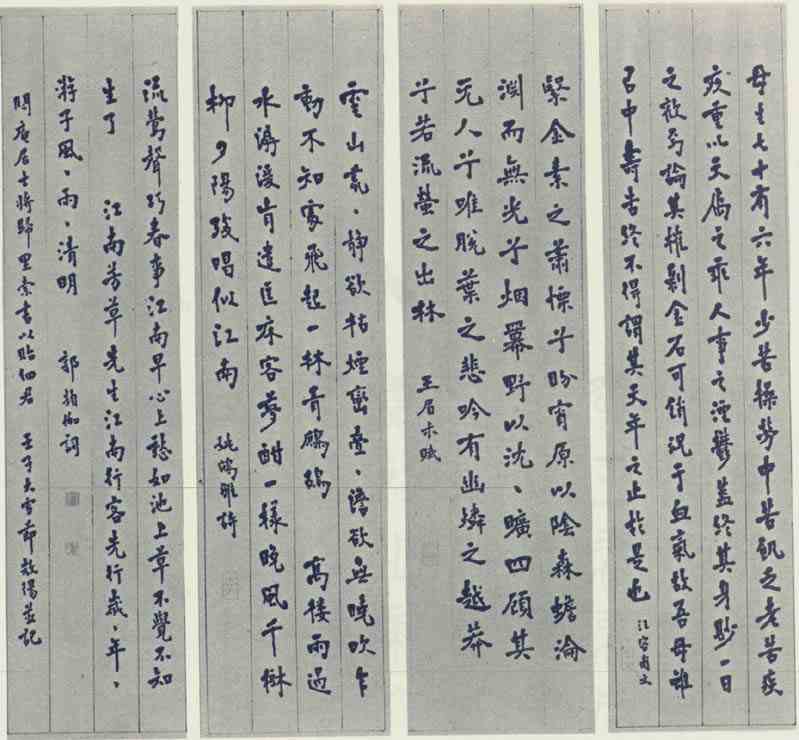 母生七十有六年少苦操勞中苦飢乏老苦疾
疢重以天屬之乖人事之湮鬱蓋終其身尠一日
之歡焉論其摧剝金石可銷況于血氣故吾母雖
以中壽告終不得謂其天年之止於是也 汪容甫文
緊金素之蕭慄兮盼宵原以陰森蟾淪
淵而無光兮烟羃野以沈〻曠四顧其
无人兮唯脫葉之悲吟有幽燐之越莽
兮若流螢之出林 王眉尗賦
雲山〻靜欲枯煙巒疊〻欲無曉吹乍
動不知家飛起一林青鷓鴣 高樓雨過
水潺湲肯遣匡床客夢酣一樣晚風千樹
柳夕陽殘唱似江南 姚鵷雛詩
流鶯聲巧春事江南早心上愁如池上草不覺不知
生了 江南芳草先生江南行客先行歲〻年〻
游子風〻雨〻清明 郭頻伽詞
閒居士將歸里索書以貽細君 壬子大雪節並記